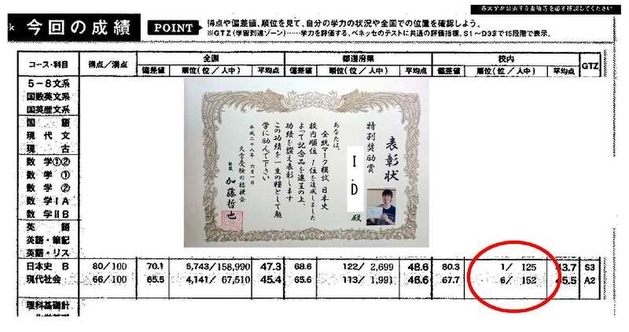 今回の成績 POINT 得点や偏差値、順位を見て、自分の学力の状況や全国での位置を確認しよう。
※GTZ(学習到達ゾーン)……学力を評価する、ベネッセのテストに共通の評価指標。S1～D3まで15段階で表示。
全国 都道府県 校内
コース・科目 得点／満点 偏差値 順位(位／人中) 平均点 偏差値 順位(位／人中) 平均点 偏差値 順位(位／人中) 平均点 GTZ
5-8文系
国数英文系
国英歴文系
国語
現代文
現古
数学①②
数学①
数学②
数学ⅠA
数学ⅡB
英語
英語・筆記
英語・リス
日本史 B 80/100 70.1 5,743/158,990 47.3 68.6 122/2,699 48.6 80.3 1/125 43.7 S3
現代社会 66/100 65.5 4,141/67,510 45.4 65.6 113/1,991 46.6 67.7 6/152 45.5 A2
理科基礎計
表彰状
特別奨励賞
I.D 殿
あなたは、
全統マーク模試、日本史
校内順位、1位を達成しました
よって記念品を進呈の上、
功績を讃え表彰します
この功績を一生の糧として勉
学に励んで下さい
平成二十八年 六月一日
大学受験の桔梗会
加藤哲也